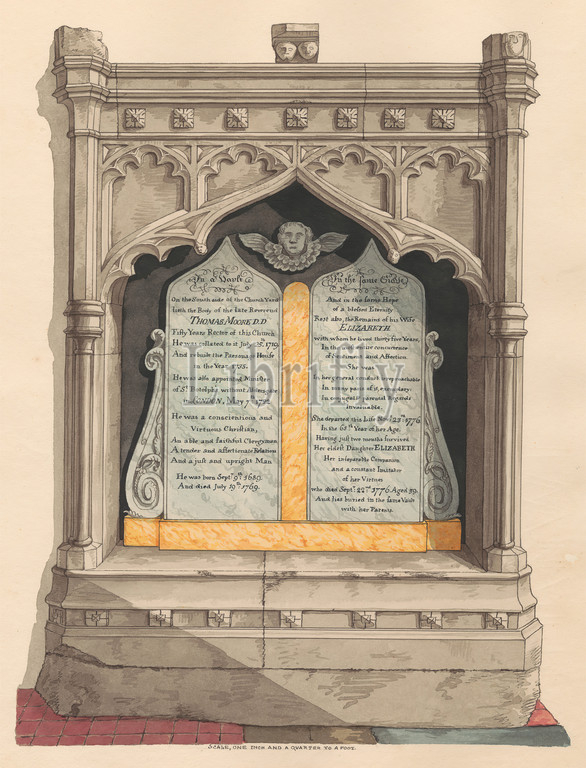 In a Vault
On the South side of the Church Yard
lieth the Body of the late Reverend
THOMAS MOORE D.D
Fifty Years Rector of this Church
He was collated to it July 1719
And rebuilt the Parsonage House
in the Year
He was also appointed Minister
of St. Botolphs without
in LONDON, May 7th
He was a conscientious and
Virtuous Christian,
An able and faithful Clergyman
A tender and affectionate Relation
And a just and upright Man
He was born Septr. 9th 1689.
And died July 19th 1769.
In the same Grave
And in the same Hope
of a blessed Eternity
Rest also, the Remains of his Wife
ELIZABETH
with whom he lived thirty five Years,
In the concurrence
of Sentiment and Affection
She was
In her general conduct irreproachable
In many parts of it, exemplary.
In conjugal & parental Regards
invariable.
She departed this Life 22th 1776
In the 65th Year of her Age.
Having just two months survived
Her eldest Daughter ELIZABETH
Her inseparable Companion
and a constant Imitator
of her Virtues
who died Septr. 22d 1776 Aged 39.
And lies buried in the same Vault
with her Parents.
SCALE, ONE INCH AND A QUARTER TO A FOOT.